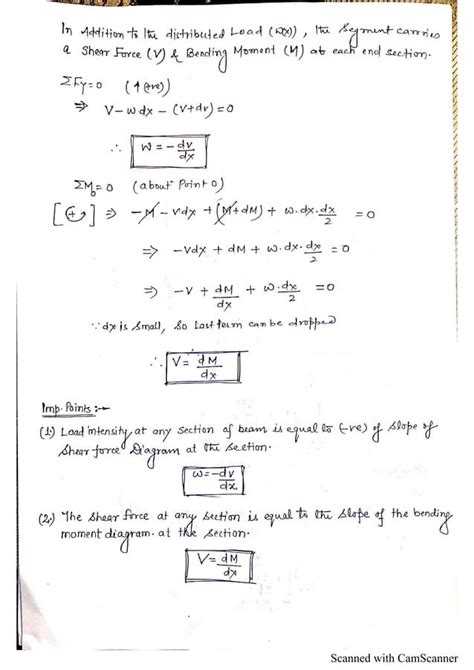 In Addition to the distributed Load (w(x)), the Segment carries
a Shear Force (V) & Bending Moment (M) at each end section.
ΣFy=0 (↑(+ve))
⇒ V-wdx-(V+dv)=0
∴ w=-dv/dx
ΣM₀=0 (about Point O)
[(+)↺] ⇒ -M-Vdx+(M+dM)+w.dx.dx/2 =0
⇒ -Vdx+dM+w.dx.dx/2=0
⇒ -V+dM/dx+w.dx/2 =0
∵dx is small, so last term can be dropped
∴ V=dM/dx
Imp. Points:-
(1.) Load intensity at any section of beam is equal to (-ve) of slope of
shear force Diagram at the section.
w=-dv/dx
(2.) The shear force at any section is equal to the slope of the bending
moment diagram. at the section.
V=dM/dx
Scanned with CamScanner